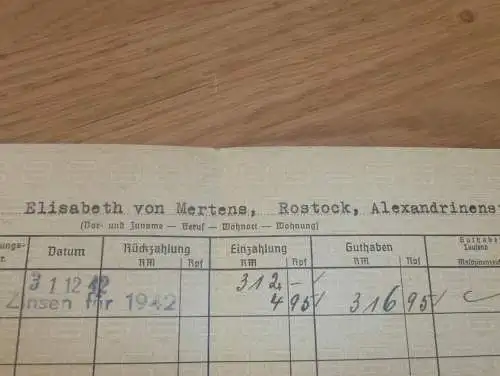 Elisabeth von Mertens, Rostock, Alexandrinens
(Vor- und Zuname — Beruf — Wohnort — Wohnung)
ungs- Datum Rückzahlung Einzahlung Guthaben Guthabe
RM Rpf RM Rpf RM Rpf
31 12 42 312 -
Zinsen für 1942 4 95 316 95